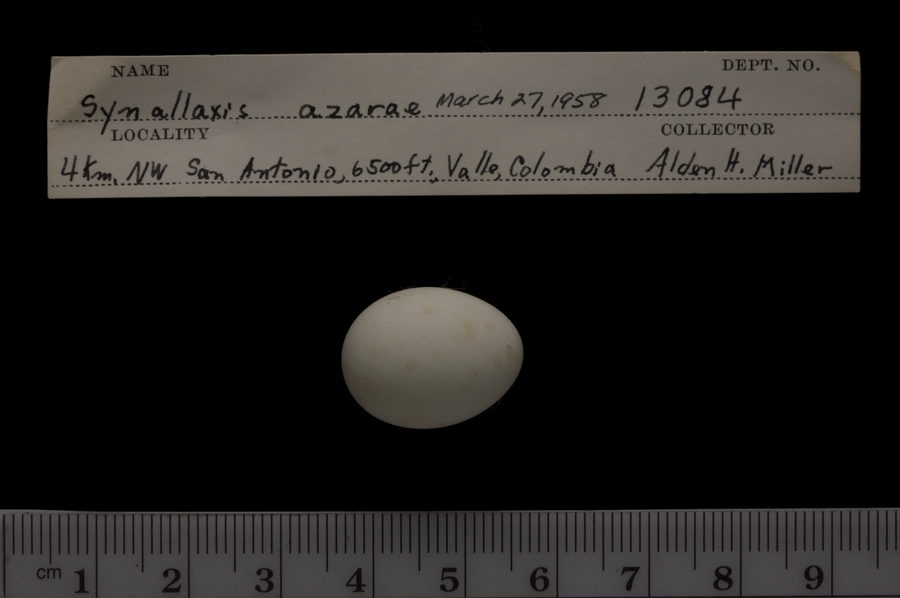 NAME DEPT. NO.
Synallaxis azarae March 27, 1958 13084
LOCALITY COLLECTOR
4 Km. NW San Antonio, 6500 ft., Valle, Colombia Alden H. Miller
cm 1 2 3 4 5 6 7 8 9